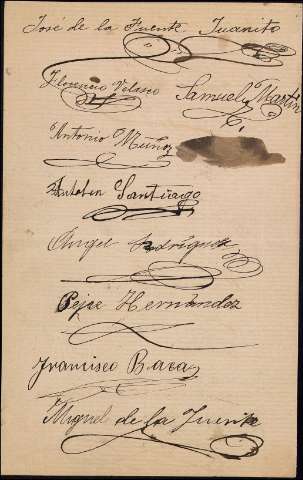 José de la Fuente. Juanito
Florencio Velasco
Samuel Martin
Antonio Muñoz
Santiago
Angel Rodriguez
Hernández
Francisco Baca
Miguel de la Fuente